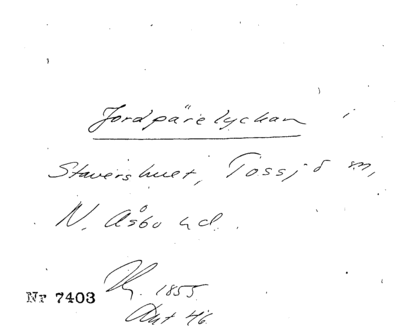 Jordpärelyckan i
Stavershult, Tossjö sn,
N. Åsbo hd.
1855
Nr 7403
Akt 46